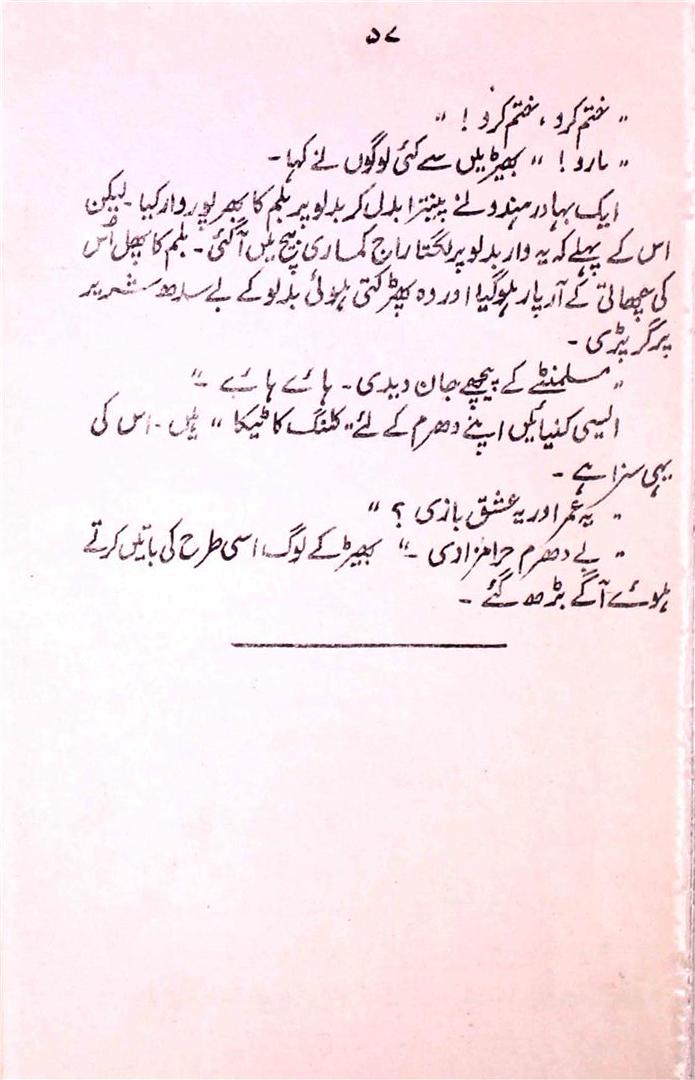 ۵۷
"ختم کرو، ختم کرو!"
"مارو!" بھیڑ میں سے کئی لوگوں نے کہا۔
ایک بہادر ہندو نے پینترا بدل کر بدلو پر بلم کا بھرپور وار کیا۔ لیکن
اس کے پہلے کہ یہ وار بدلو پر لگتا راج کماری بیچ میں آگئی۔ بلم کا پھل اُس
کی چھاتی کے آر پار ہو گیا اور وہ پھڑکتی ہوئی بدلو کے بے سدھ شریر
پر گر پڑی۔
"مسلمنٹے کے پیچھے جان دیدی۔ ہائے ہائے۔"
ایسی کنیائیں اپنے دھرم کے لئے "کلنک کا ٹیکا" ہیں۔ اس کی
یہی سزا ہے۔
"یہ عمر اور یہ عشق بازی؟"
"بے دھرم حرامزادی۔" بھیڑ کے لوگ اسی طرح کی باتیں کرتے
ہوئے آگے بڑھ گئے۔